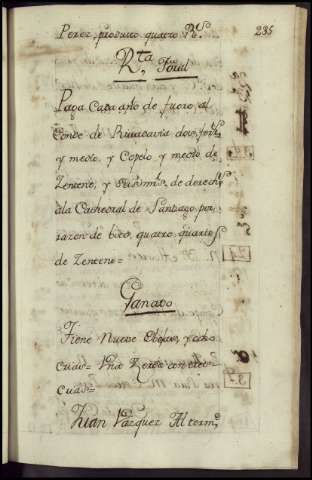 Perez, producto quatro Rs.
235
Rta, Foral
Paga Cada año de fuero al
Conde de Rivadavia dos ferrs.
y medio, y Copelo, y medio de
Zenteno, y de derechos
ala Cathedral de Santiago por
razon de Voto, quatro quartos
de Zenteno=
Ganado
Tiene Nueve Obejas, y ocho
Crias= Una Zerda con cinco
Crias=
Juan Vazquez Al termo.